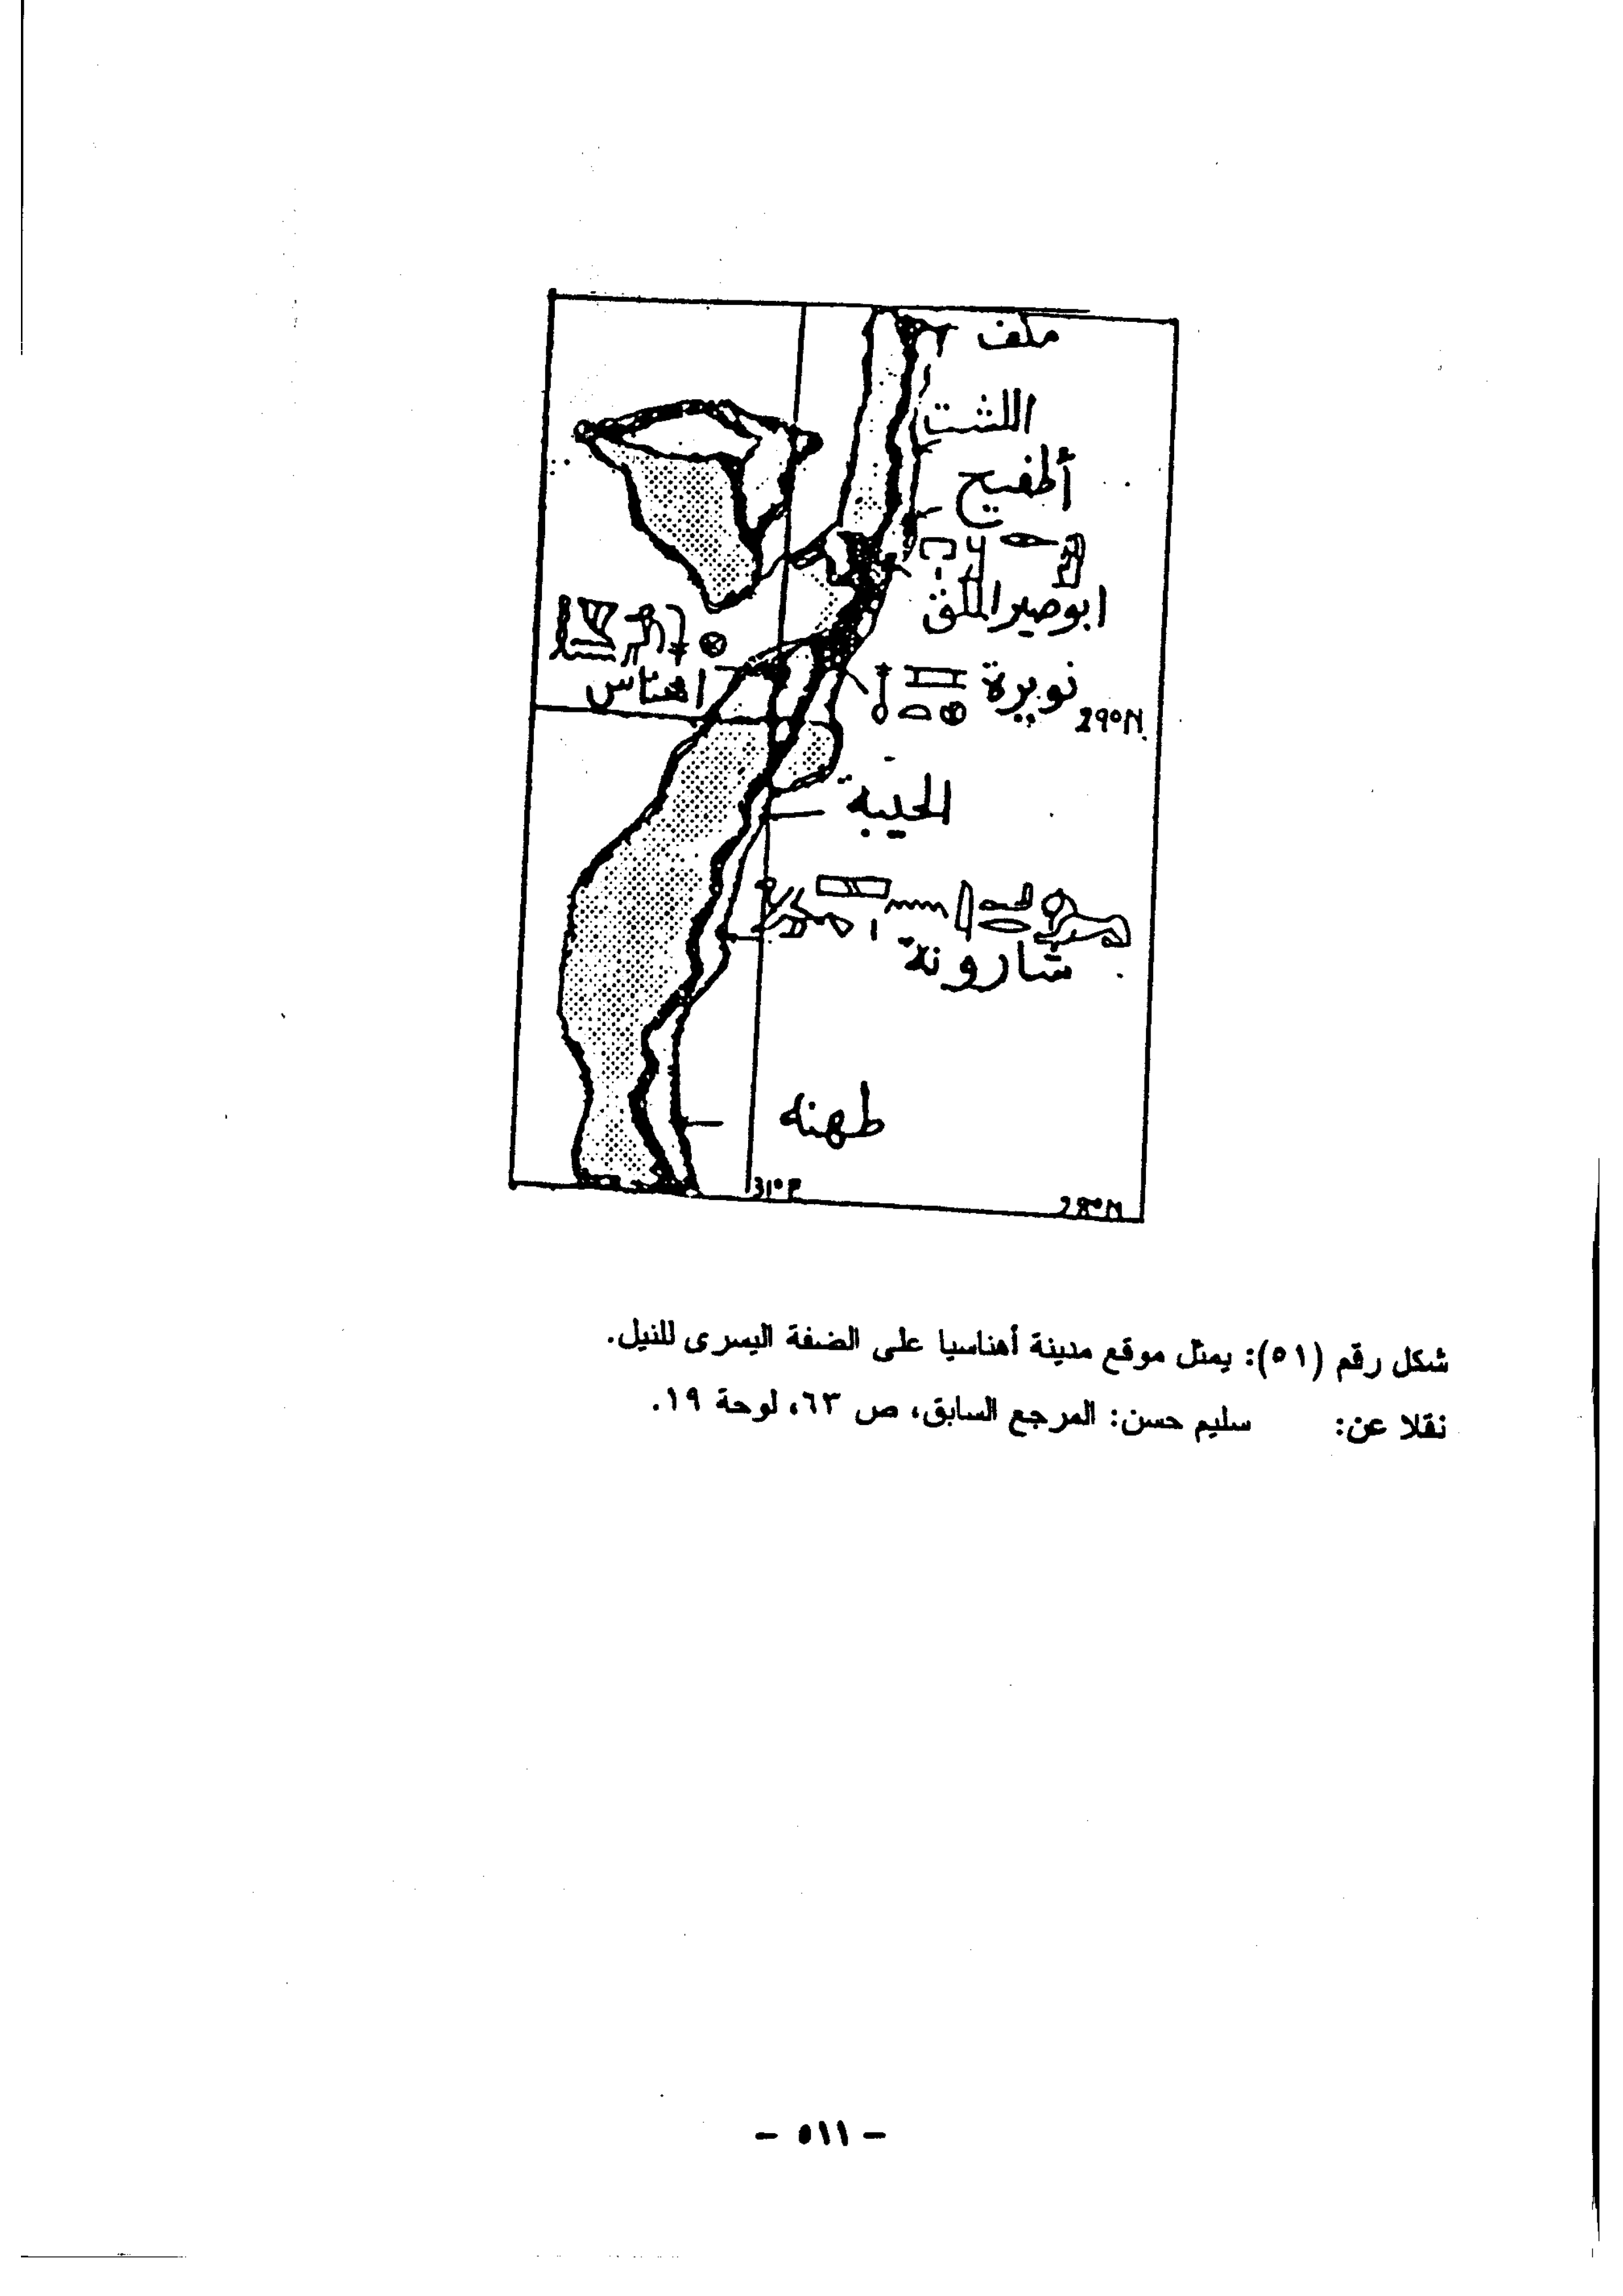 ملف
اللشت
أطفيح
ابوصير الملق
اهناس
نويرة
29°N
الحيبة
شارونة
طهنه
31°E
28°N
شكل رقم (٥١): يمثل موقع مدينة أهناسيا على الضفة اليسرى للنيل.
نقلا عن: سليم حسن: المرجع السابق، ص ٦٣، لوحة ١٩.
- ٥١١ -